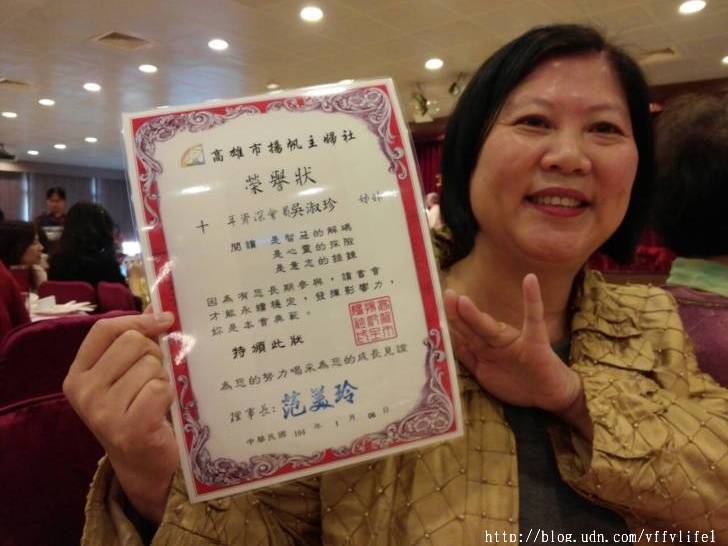 高雄市揚帆主婦社
榮譽狀
十 年資深會員吳淑珍 姊妹
閱讀 是智慧的解碼
是心靈的探險
是意志的錘鍊
因為有您長期參與，讀書會
才能永續穩定，發揮影響力，
妳是本會典範。
特頒此狀
為您的努力喝采為您的成長見證
理事長：范美玲
中華民國 104 年 1 月 06 日
http://blog.udn.com/vffvlife1